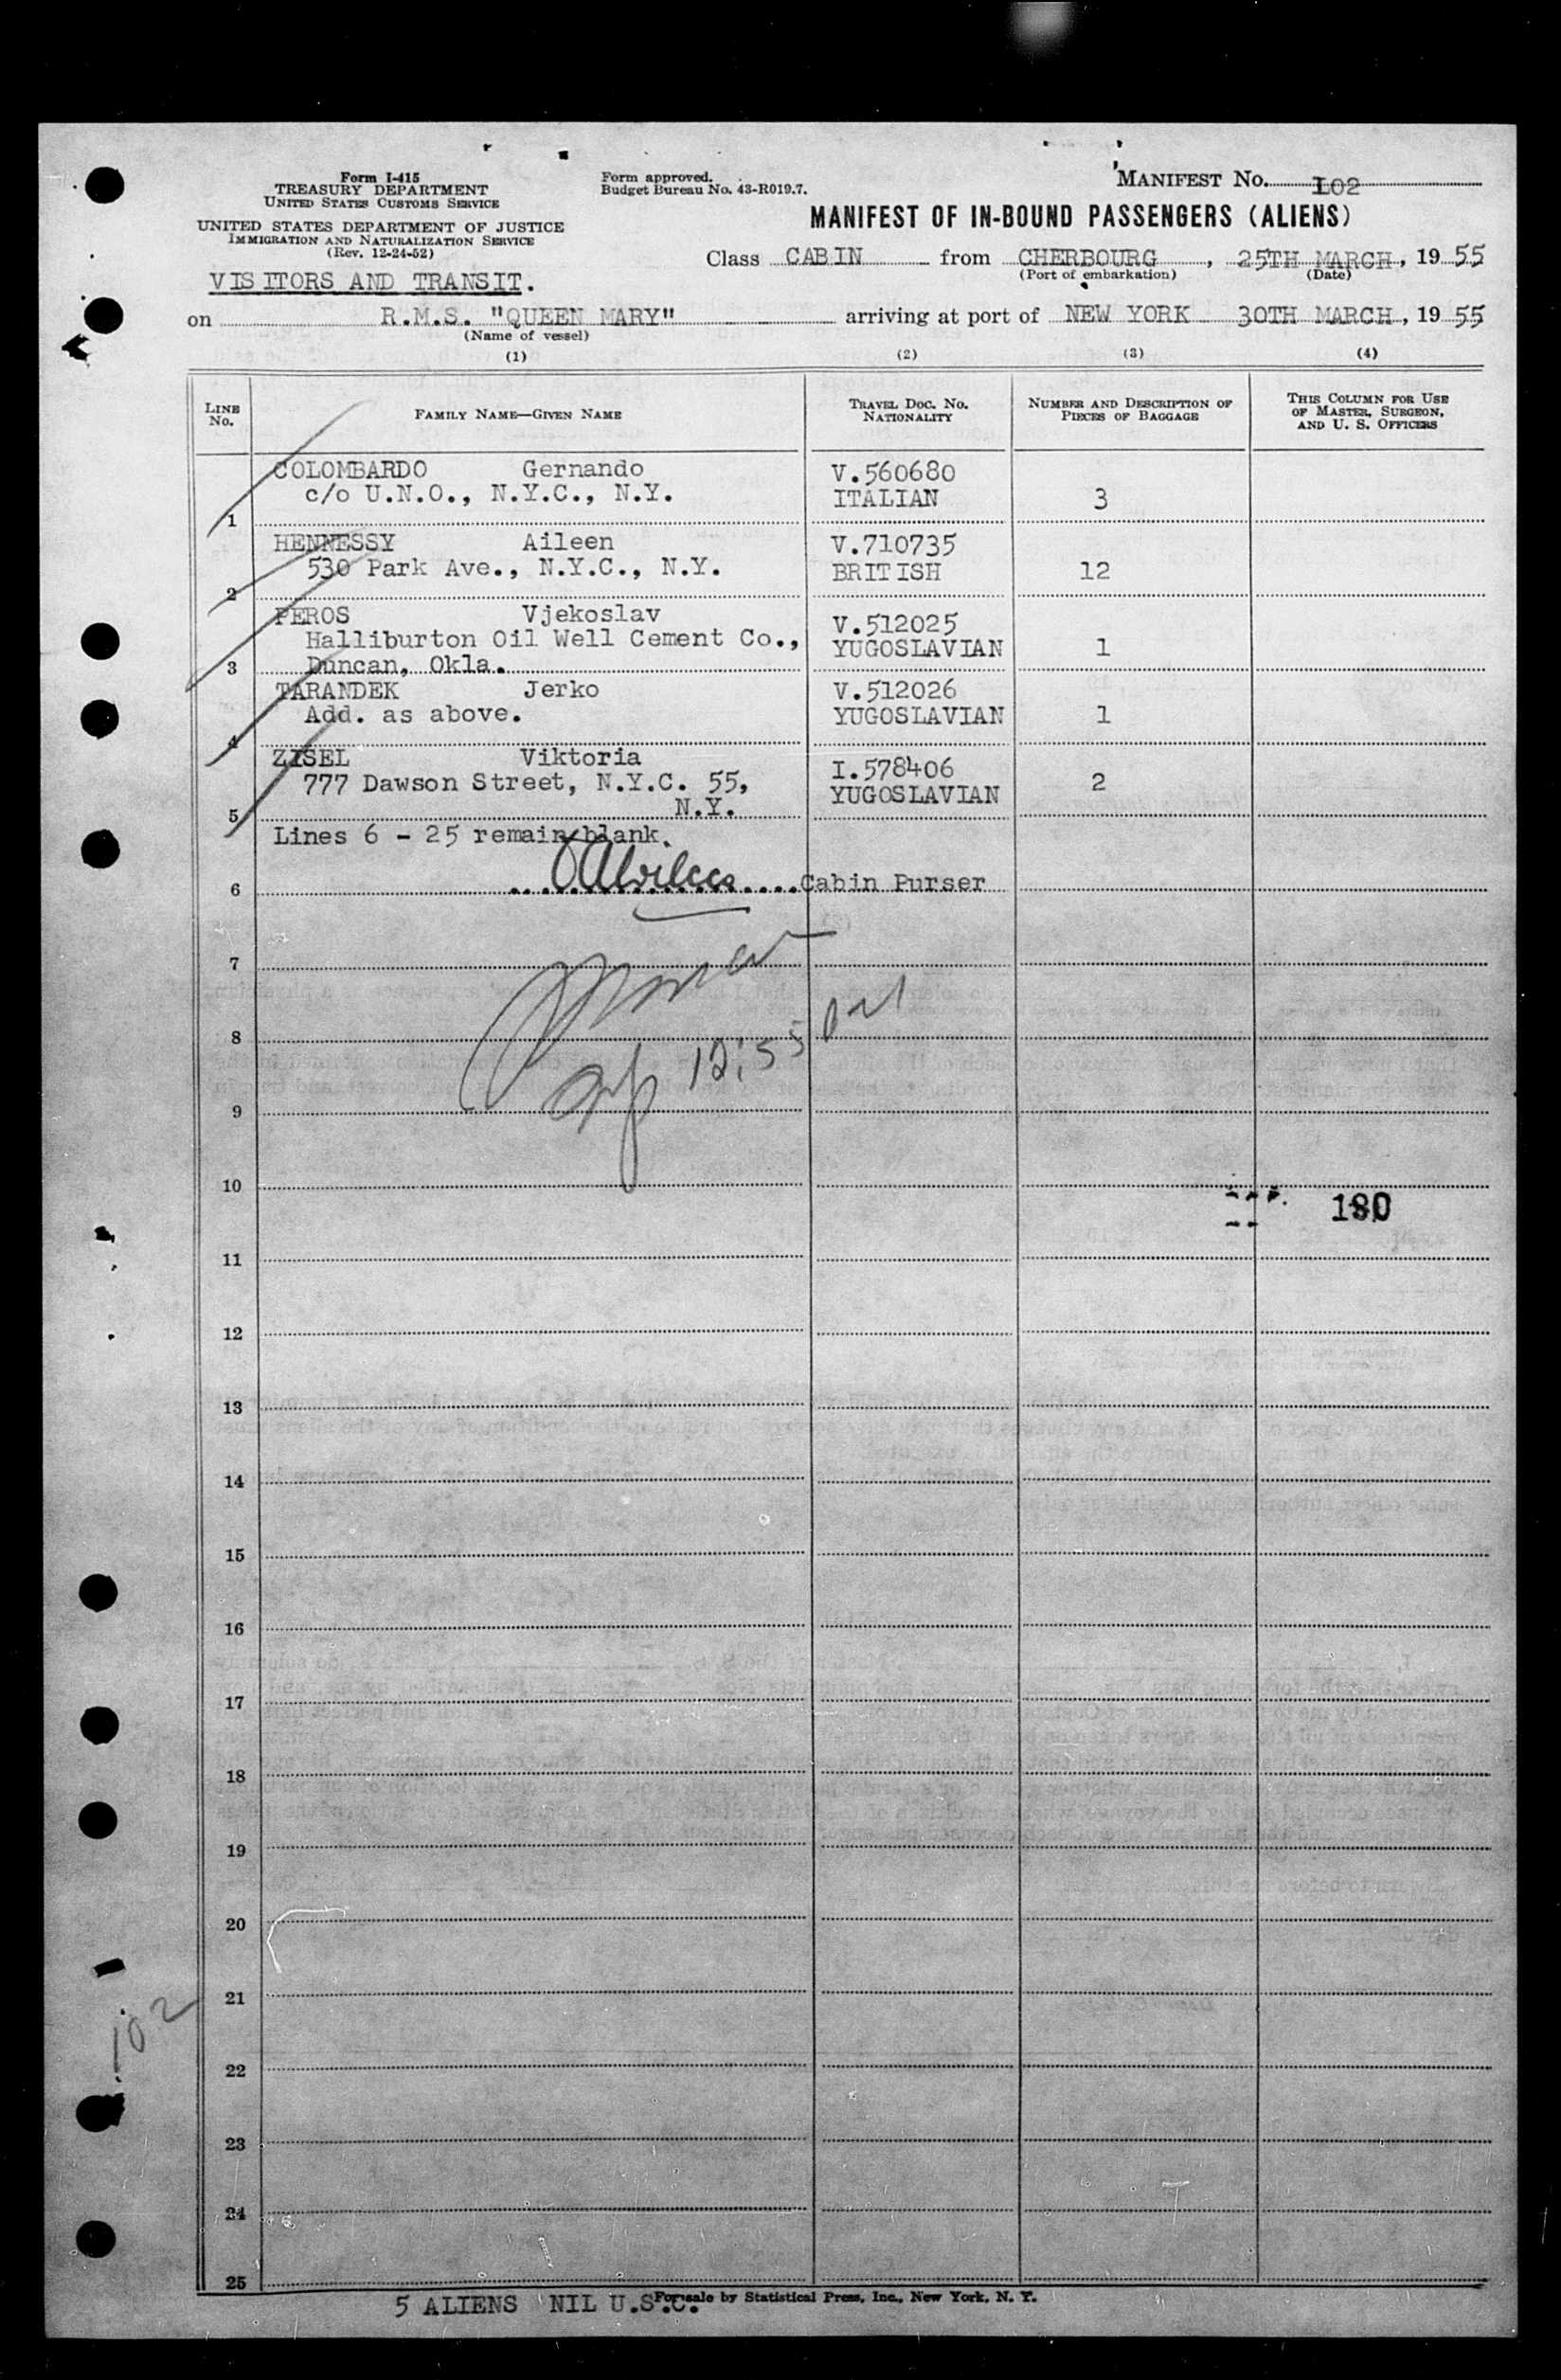 Form I-415
TREASURY DEPARTMENT
UNITED STATES CUSTOMS SERVICE
UNITED STATES DEPARTMENT OF JUSTICE
IMMIGRATION AND NATURALIZATION SERVICE
(Rev. 12-24-52)
Form approved.
Budget Bureau No. 43-R019.7.
MANIFEST No. 102
MANIFEST OF IN-BOUND PASSENGERS (ALIENS)
Class CABIN from CHERBOURG, 25TH MARCH, 19 55
(Port of embarkation) (Date)
VISITORS AND TRANSIT.
on R.M.S. "QUEEN MARY" arriving at port of NEW YORK 30TH MARCH, 19 55
(Name of vessel)
(1) (2) (3) (4)
LINE No. FAMILY NAME—GIVEN NAME TRAVEL DOC. NO. NATIONALITY NUMBER AND DESCRIPTION OF PIECES OF BAGGAGE THIS COLUMN FOR USE OF MASTER, SURGEON, AND U. S. OFFICERS
COLOMBARDO Gernando V.560680
c/o U.N.O., N.Y.C., N.Y. ITALIAN 3
1
HENNESSY Aileen V.710735
530 Park Ave., N.Y.C., N.Y. BRITISH 12
2
PEROS Vjekoslav V.512025
Halliburton Oil Well Cement Co., YUGOSLAVIAN 1
3 Duncan, Okla.
TARANDEK Jerko V.512026
Add. as above. YUGOSLAVIAN 1
4
ZISEL Viktoria I.578406
777 Dawson Street, N.Y.C. 55, YUGOSLAVIAN 2
5 N.Y.
Lines 6 - 25 remain blank.
6 Cabin Purser
7
8
12:55 PM
9
10
180
11
12
13
14
15
16
17
18
19
20
21
102
22
23
24
25
5 ALIENS NIL U.S.C.
For sale by Statistical Press, Inc., New York, N. Y.